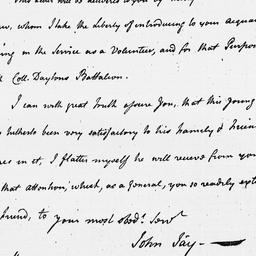 will be delivered to you by
whom I take the Liberty of introducing to your acquain
ing in the Service as a Volunteer, and for that Purpose
Coll. Daytons Battalion.
I can with great Truth assure You, that this young
hitherto been very satisfactory to his Family & Friend
in it, I flatter myself he will receive from you
that attention, which, as a General, you so readily exte
friend, to your most obdt. Servt
John Jay